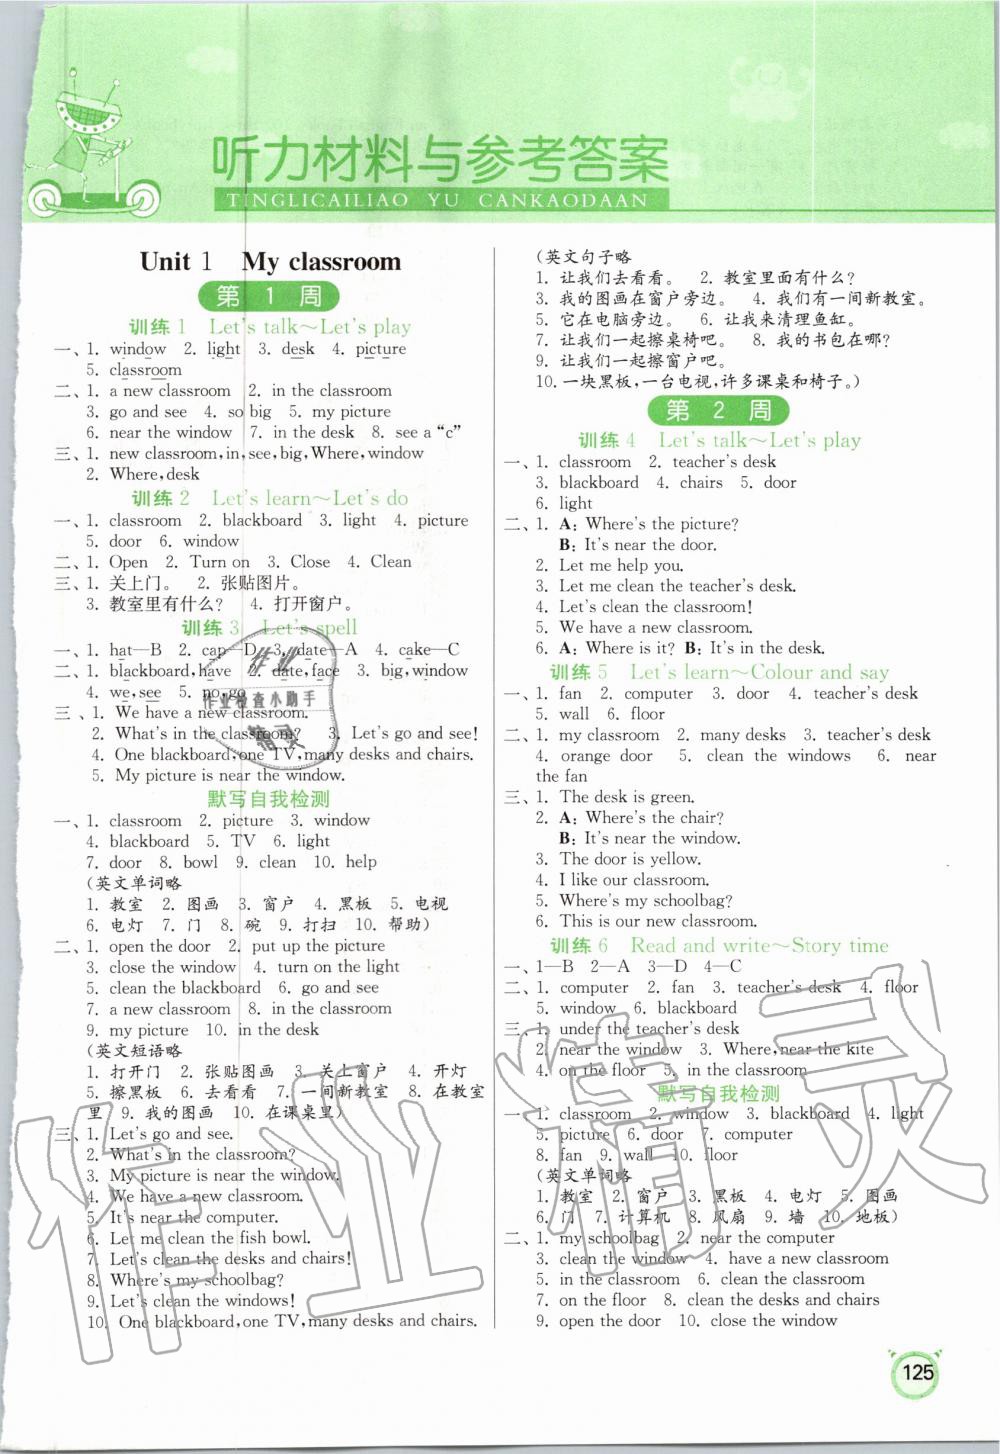 听力材料与参考答案
TINGLICAILIAO YU CANKAODAAN
Unit 1 My classroom
第 1 周
训练 1 Let's talk～Let's play
一、1. window 2. light 3. desk 4. picture
5. classroom
二、1. a new classroom 2. in the classroom
3. go and see 4. so big 5. my picture
6. near the window 7. in the desk 8. see a “c”
三、1. new classroom, in, see, big, Where, window
2. Where, desk
训练 2 Let's learn～Let's do
一、1. classroom 2. blackboard 3. light 4. picture
5. door 6. window
二、1. Open 2. Turn on 3. Close 4. Clean
三、1. 关上门。 2. 张贴图片。
3. 教室里有什么? 4. 打开窗户。
训练 3 Let's spell
一、1. hat—B 2. cap—D 3. date—A 4. cake—C
二、1. blackboard, have 2. date, face 3. big, window
4. we, see 5. no, go
三、1. We have a new classroom.
2. What's in the classroom? 3. Let's go and see!
4. One blackboard, one TV, many desks and chairs.
5. My picture is near the window.
默写自我检测
一、1. classroom 2. picture 3. window
4. blackboard 5. TV 6. light
7. door 8. bowl 9. clean 10. help
(英文单词略
1. 教室 2. 图画 3. 窗户 4. 黑板 5. 电视
6. 电灯 7. 门 8. 碗 9. 打扫 10. 帮助)
二、1. open the door 2. put up the picture
3. close the window 4. turn on the light
5. clean the blackboard 6. go and see
7. a new classroom 8. in the classroom
9. my picture 10. in the desk
(英文短语略
1. 打开门 2. 张贴图画 3. 关上窗户 4. 开灯
5. 擦黑板 6. 去看看 7. 一间新教室 8. 在教室
里 9. 我的图画 10. 在课桌里)
三、1. Let's go and see.
2. What's in the classroom?
3. My picture is near the window.
4. We have a new classroom.
5. It's near the computer.
6. Let me clean the fish bowl.
7. Let's clean the desks and chairs!
8. Where's my schoolbag?
9. Let's clean the windows!
10. One blackboard, one TV, many desks and chairs.
(英文句子略
1. 让我们去看看。 2. 教室里面有什么?
3. 我的图画在窗户旁边。 4. 我们有一间新教室。
5. 它在电脑旁边。 6. 让我来清理鱼缸。
7. 让我们一起擦桌椅吧。 8. 我的书包在哪儿?
9. 让我们一起擦窗户吧。
10. 一块黑板,一台电视,许多课桌和椅子。)
第 2 周
训练 4 Let's talk～Let's play
一、1. classroom 2. teacher's desk
3. blackboard 4. chairs 5. door
6. light
二、1. A: Where's the picture?
B: It's near the door.
2. Let me help you.
3. Let me clean the teacher's desk.
4. Let's clean the classroom!
5. We have a new classroom.
6. A: Where is it? B: It's in the desk.
训练 5 Let's learn～Colour and say
一、1. fan 2. computer 3. door 4. teacher's desk
5. wall 6. floor
二、1. my classroom 2. many desks 3. teacher's desk
4. orange door 5. clean the windows 6. near
the fan
三、1. The desk is green.
2. A: Where's the chair?
B: It's near the window.
3. The door is yellow.
4. I like our classroom.
5. Where's my schoolbag?
6. This is our new classroom.
训练 6 Read and write～Story time
一、1—B 2—A 3—D 4—C
二、1. computer 2. fan 3. teacher's desk 4. floor
5. window 6. blackboard
三、1. under the teacher's desk
2. near the window 3. Where, near the kite
4. on the floor 5. in the classroom
默写自我检测
一、1. classroom 2. window 3. blackboard 4. light
5. picture 6. door 7. computer
8. fan 9. wall 10. floor
(英文单词略
1. 教室 2. 窗户 3. 黑板 4. 电灯 5. 图画
6. 门 7. 计算机 8. 风扇 9. 墙 10. 地板)
二、1. my schoolbag 2. near the computer
3. clean the window 4. have a new classroom
5. in the classroom 6. clean the classroom
7. on the floor 8. clean the desks and chairs
9. open the door 10. close the window
125
作业
作业检查小助手
精灵
作业精灵